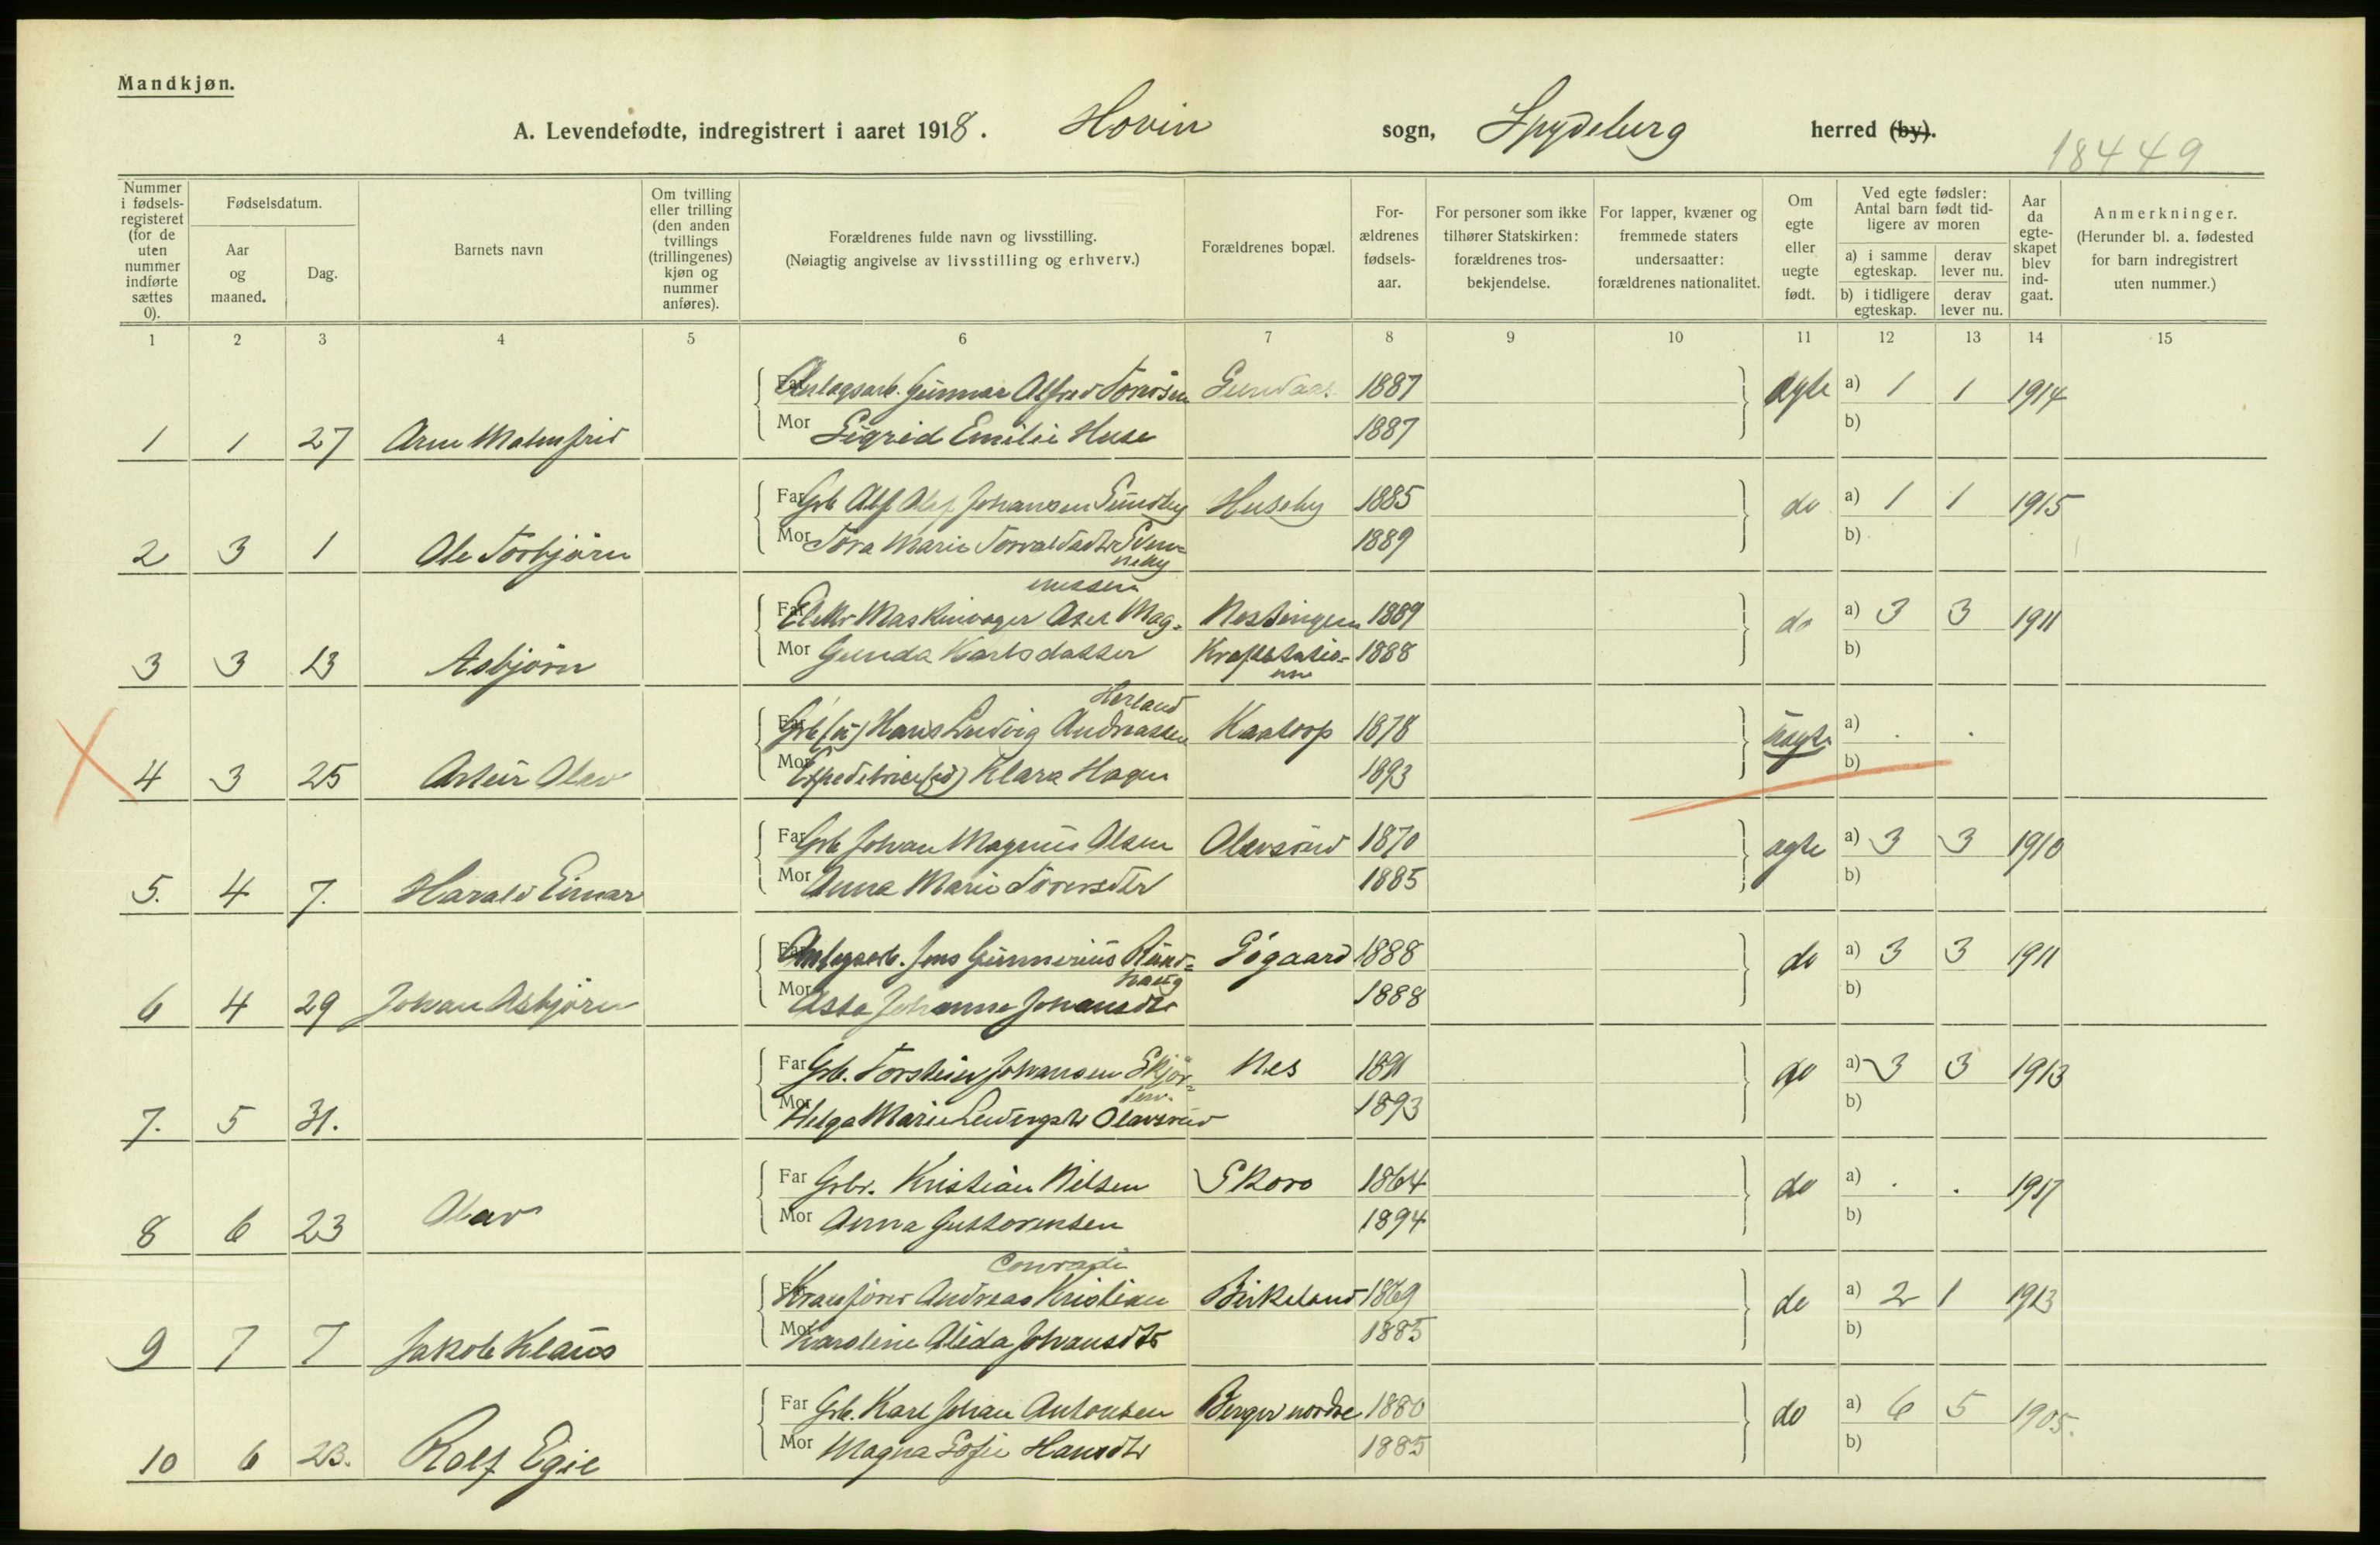 Mandkjøn.
A. Levendefødte, indregistrert i aaret 1918. Hovin sogn, Spydeberg herred (by).
18449
Nummer i fødsels-registeret (for de uten nummer indførte sættes 0).
Fødselsdatum.
Aar og maaned.
Dag.
Barnets navn
Om tvilling eller trilling (den anden tvillings (trillingenes) kjøn og nummer anføres).
Forældrenes fulde navn og livsstilling.
(Nøiagtig angivelse av livsstilling og erhverv.)
Forældrenes bopæl.
For-ældrenes fødsels-aar.
For personer som ikke tilhører Statskirken: forældrenes tros-bekjendelse.
For lapper, kvæner og fremmede staters undersaatter: forældrenes nationalitet.
Om egte eller uegte født.
Ved egte fødsler: Antal barn født tid-ligere av moren
a) i samme egteskap.
derav lever nu.
b) i tidligere egteskap.
derav lever nu.
Aar da egte-skapet blev ind-gaat.
Anmerkninger.
(Herunder bl. a. fødested for barn indregistrert uten nummer.)
1 2 3 4 5 6 7 8 9 10 11 12 13 14 15
Far Anlægsarb. Gunnar Alfred 1887 ægte a) 1 1 1914
1 1 27 Arne Malmfrid Mor Sigrid Emilie Huse 1887 b)
Far Grb Alf Olaf Johansen Sundby Huseby 1885 do a) 1 1 1915
2 3 1 Ole Torbjørn Mor Tora Marie 1889 b)
neby
nussen
Far Elektr Maskinvager Axel Mag- 1889 do a) 3 3 1911
3 3 13 Asbjørn Mor Gunda Karlsdatter Kraftstatio- 1888 b)
nen
Herland
Far Grb (u) Hans Ludvig Andreassen Kaatorp 1878 uægte a) . .
4 3 25 Artur Olav Mor Klara Hagen 1893 b)
Far Grb Johan Magnus Olsen Olavsrud 1870 ægte a) 3 3 1910
5. 4 7. Harald Einar Mor Anna Marie 1885 b)
Far Anlægsarb. Jens Gunnerius Rund- Søgaard 1888 do a) 3 3 1911
haug
6 4 29 Johan Asbjørn Mor Asta Johanne Johansdtr 1888 b)
Far Grb. Torstein Johansen Skjør- Nes 1891 do a) 3 3 1913
7. 5 31. Mor Helga Marie Ludvigsdtr Olavsrud 1893 b)
Far Grbr. Kristian Nilsen Skoro 1864 do a) . . 1917
8 6 23 Olav Mor Anna Guttormsen 1894 b)
Conradi
Far Kranfører Andreas Kristian Birkeland 1869 do a) 2 1 1913
9 7 7 Jakob Klaus Mor Karoline Alida Johansdtr 1885 b)
Far Grb. Karl Johan Antonsen Berger nordre 1880 do a) 6 5 1905.
10 6 23. Rolf Egil Mor Magna Sofie Hansdtr 1885 b)